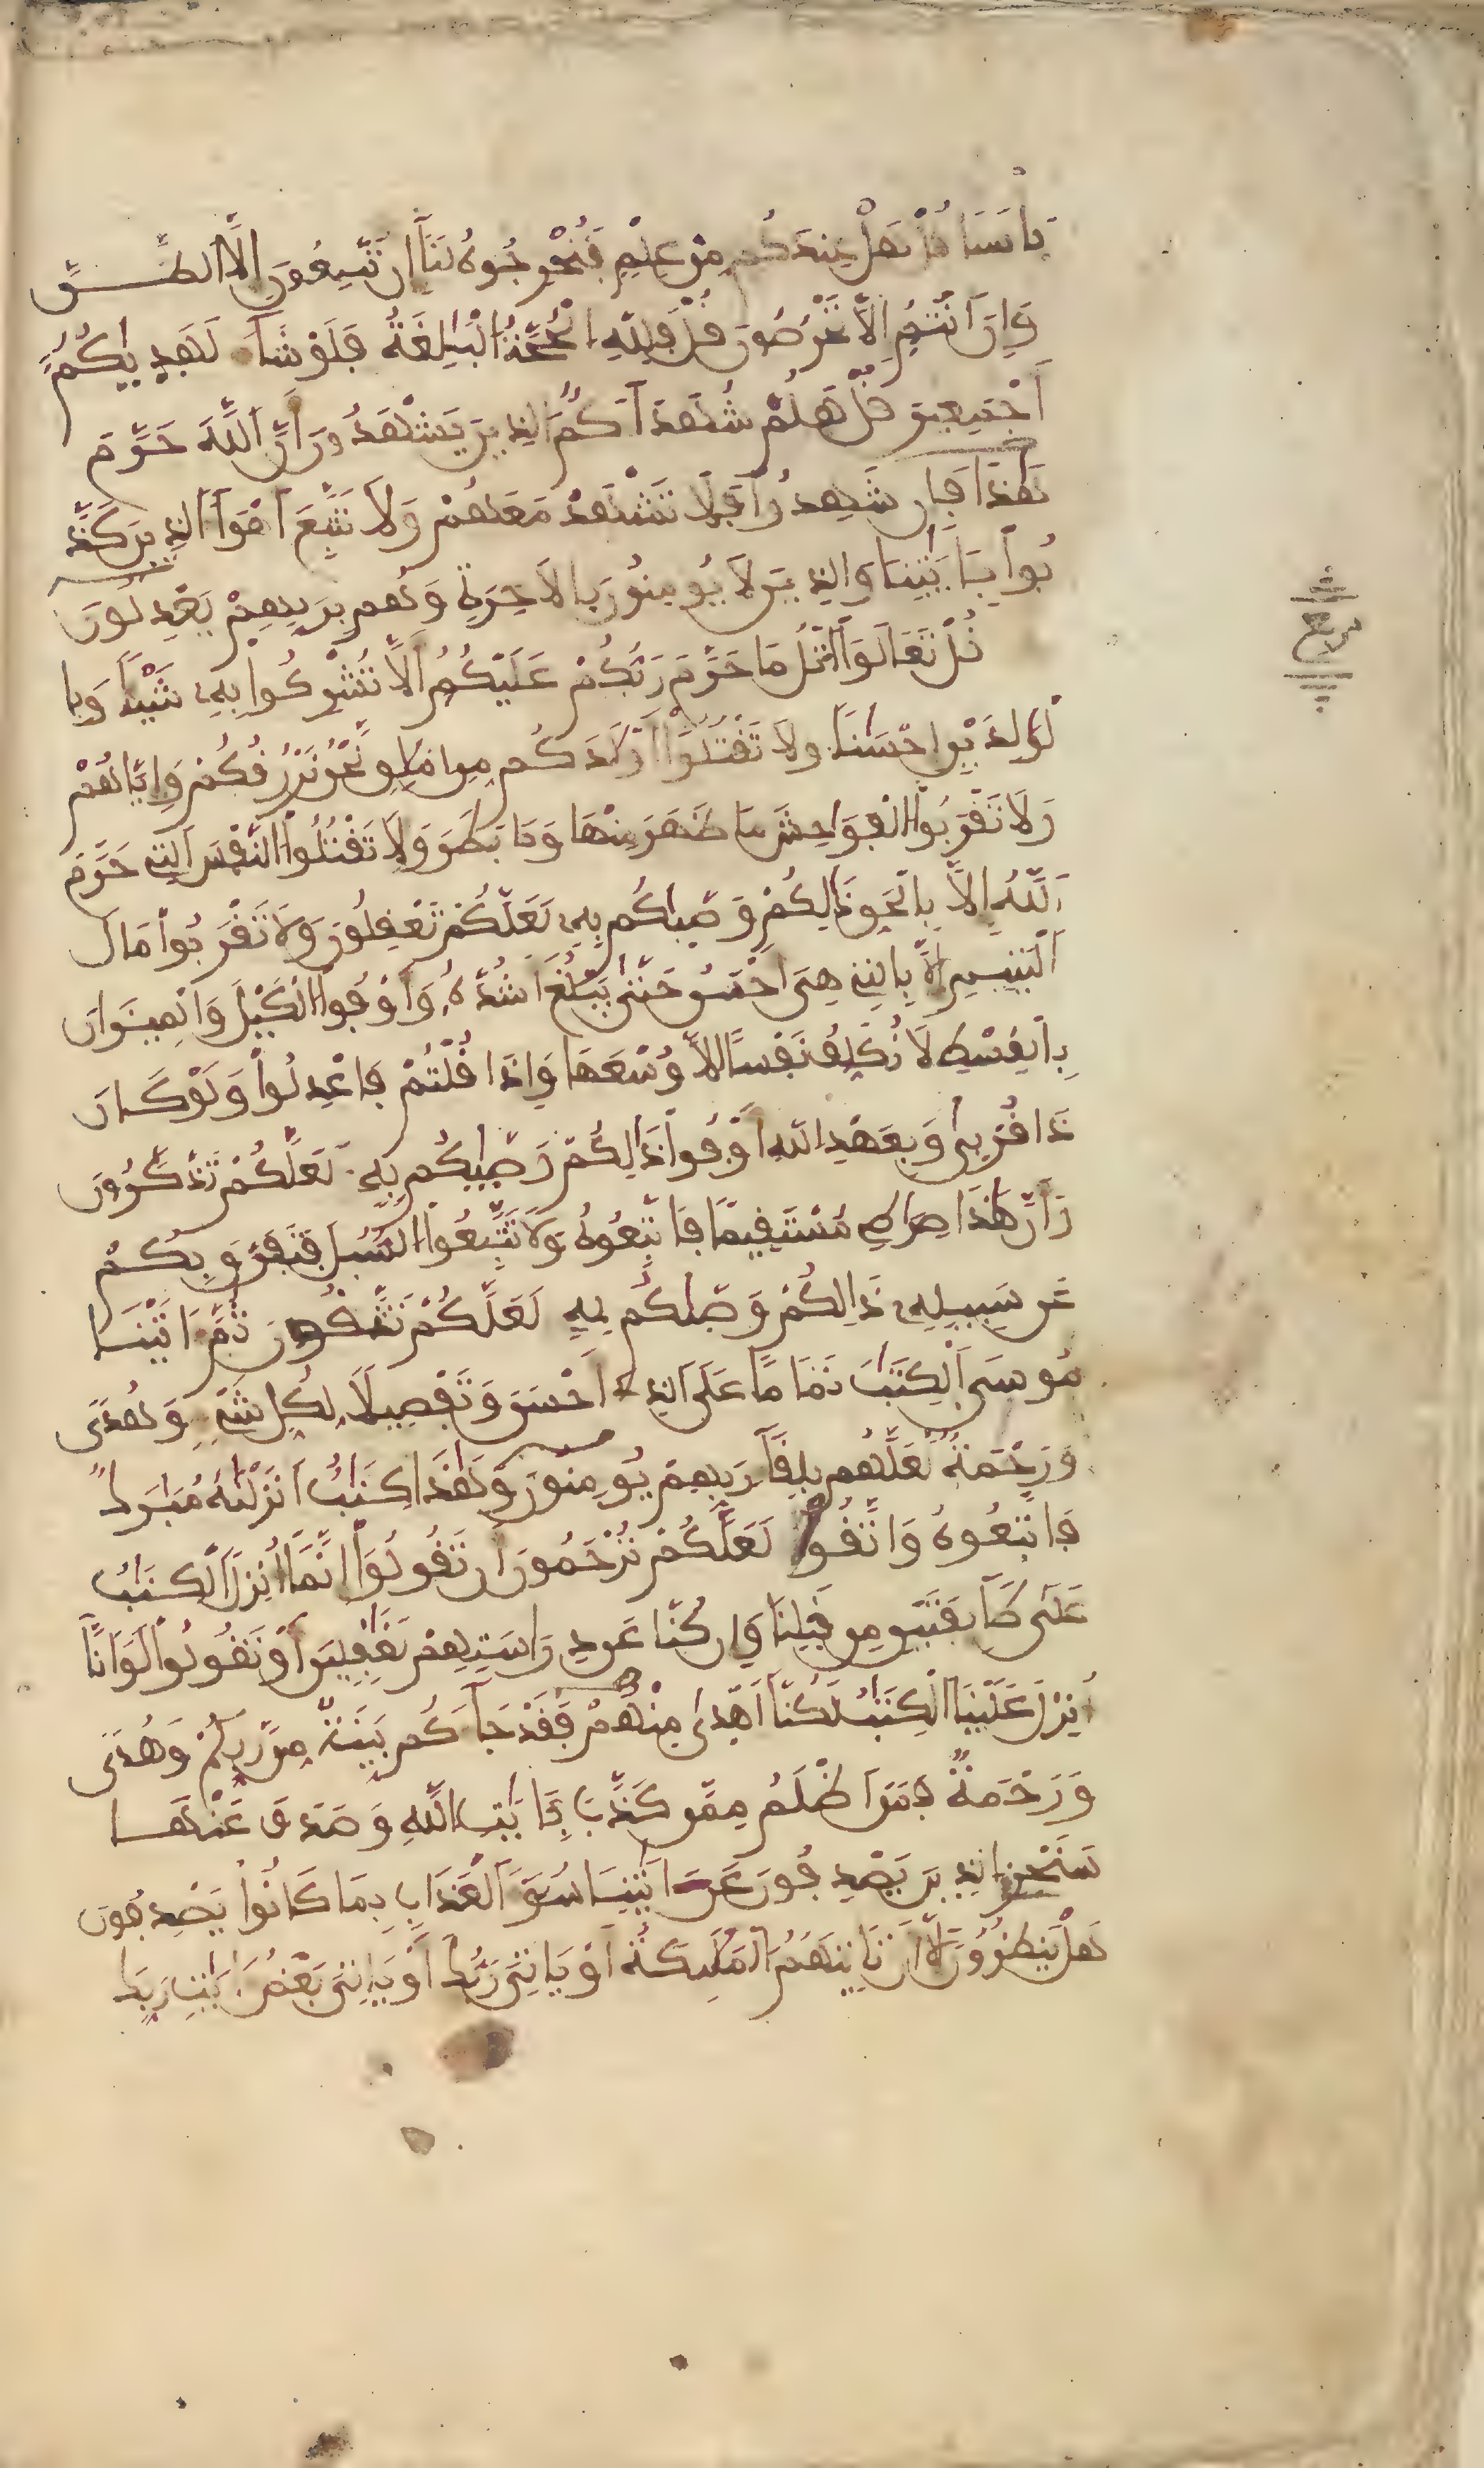 بَأْسَنَا قُلْ هَلْ عِندَكُم مِّنْ عِلْمٍ فَتُخْرِجُوهُ لَنَا إِن تَتَّبِعُونَ إِلَّا الظَّنَّ
وَإِنَ أَنتُمُ إِلَّا تَخْرُصُونَ قُلْ فَلِلَّهِ الْحُجَّةُ الْبَٰلِغَةُ فَلَوْ شَآءَ لَهَدٜىٰكُمُ
أَجْمَعِينَ قُلْ هَلُمَّ شُهَدَآءَكُمُ الذِينَ يَشْهَدُونَ أَنَّ اللَّهَ حَرَّمَ
هَٰذَا فَإِن شَهِدُوا۟ فَلَا تَشْهَدْ مَعَهُمْ وَلَا تَتَّبِعَ اَهْوَآءَ الذِينَ كَذَّ
بُوا۟ بِـَٔايَٰتِنَا وَالذِينَ لَا يُومِنُونَ بِالَاخِرَةِ وَهُم بِرَبِّهِمْ يَعْدِلُونَ
قُلْ تَعَالَوَا۟ اَتْلُ مَا حَرَّمَ رَبُّكُمْ عَلَيْكُمُ أَلَّا تُشْرِكُوا۟ بِهِۦ شَيْـًٔا وَبِا
لْوَٰلِدَيْنِ إِحْسَٰنًا وَلَا تَقْتُلُوا۟ أَوْلَٰدَكُم مِّنِ امْلَٰقٍ نَّحْنُ نَرْزُقُكُمْ وَإِيَّاهُمْ
وَلَا تَقْرَبُوا۟ الْفَوَٰحِشَ مَا ظَهَرَ مِنْهَا وَمَا بَطَنَ وَلَا تَقْتُلُوا۟ النَّفْسَ التِے حَرَّمَ
اَللَّهُ إِلَّا بِالْحَقِّ ذَٰلِكُمْ وَصّٜىٰكُم بِهِۦ لَعَلَّكُمْ تَعْقِلُونَ وَلَا تَقْرَبُوا۟ مَالَ
اَلْيَتِيمِ إِلَّا بِالتِے هِىَ أَحْسَنُ حَتَّىٰ يَبْلُغَ أَشُدَّهُۥ وَأَوْفُوا۟ الْكَيْلَ وَالْمِيزَانَ
بِالْقِسْطِ لَا نُكَلِّفُ نَفْسًا إِلَّا وُسْعَهَا وَإِذَا قُلْتُمْ فَاعْدِلُوا۟ وَلَوْ كَانَ
ذَا قُرْبٜىٰ وَبِعَهْدِ اللَّهِ أَوْفُوا۟ ذَٰلِكُمْ وَصّٜىٰكُم بِهِۦ لَعَلَّكُمْ تَذَّكَّرُونَ
وَأَنَّ هَٰذَا صِرَٰطِے مُسْتَقِيمًا فَاتَّبِعُوهُ وَلَا تَتَّبِعُوا۟ السُّبُلَ فَتَفَرَّقَ بِكُمْ
عَن سَبِيلِهِۦ ذَٰلِكُمْ وَصّٜىٰكُم بِهِۦ لَعَلَّكُمْ تَتَّقُونَ ثُمَّ ءَاتَيْنَا
مُوسَى الْكِتَٰبَ تَمَامًا عَلَى الذِے أَحْسَنَ وَتَفْصِيلًا لِّكُلِّ شَےْءٍ وَهُدًى
وَرَحْمَةً لَّعَلَّهُم بِلِقَآءِ رَبِّهِمْ يُومِنُونَ وَهَٰذَا كِتَٰبٌ اَنزَلْنَٰهُ مُبَٰرَكٌ
فَاتَّبِعُوهُ وَاتَّقُوا۟ لَعَلَّكُمْ تُرْحَمُونَ أَن تَقُولُوا۟ إِنَّمَا أُنزِلَ الْكِتَٰبُ
عَلَىٰ طَآئِفَتَيْنِ مِن قَبْلِنَا وَإِن كُنَّا عَن دِرَاسَتِهِمْ لَغَٰفِلِينَ أَوْ تَقُولُوا۟ لَوَ انَّا
أُنزِلَ عَلَيْنَا الْكِتَٰبُ لَكُنَّا أَهْدٜىٰ مِنْهُمْ فَقَدْ جَآءَكُم بَيِّنَةٌ مِّن رَّبِّكُمْ وَهُدًى
وَرَحْمَةٌ فَمَنَ اَظْلَمُ مِمَّن كَذَّبَ بِـَٔايَٰتِ اللَّهِ وَصَدَفَ عَنْهَا
سَنَجْزِے الذِينَ يَصْدِفُونَ عَنَ ايَٰتِنَا سُوٓءَ الْعَذَابِ بِمَا كَانُوا۟ يَصْدِفُونَ
هَلْ يَنظُرُونَ إِلَّا أَن تَاتِيَهُمُ الْمَلَٰٓئِكَةُ أَوْ يَاتِىَ رَبُّكَ أَوْ يَاتِىَ بَعْضُ ءَايَٰتِ رَبِّكَ
ربع